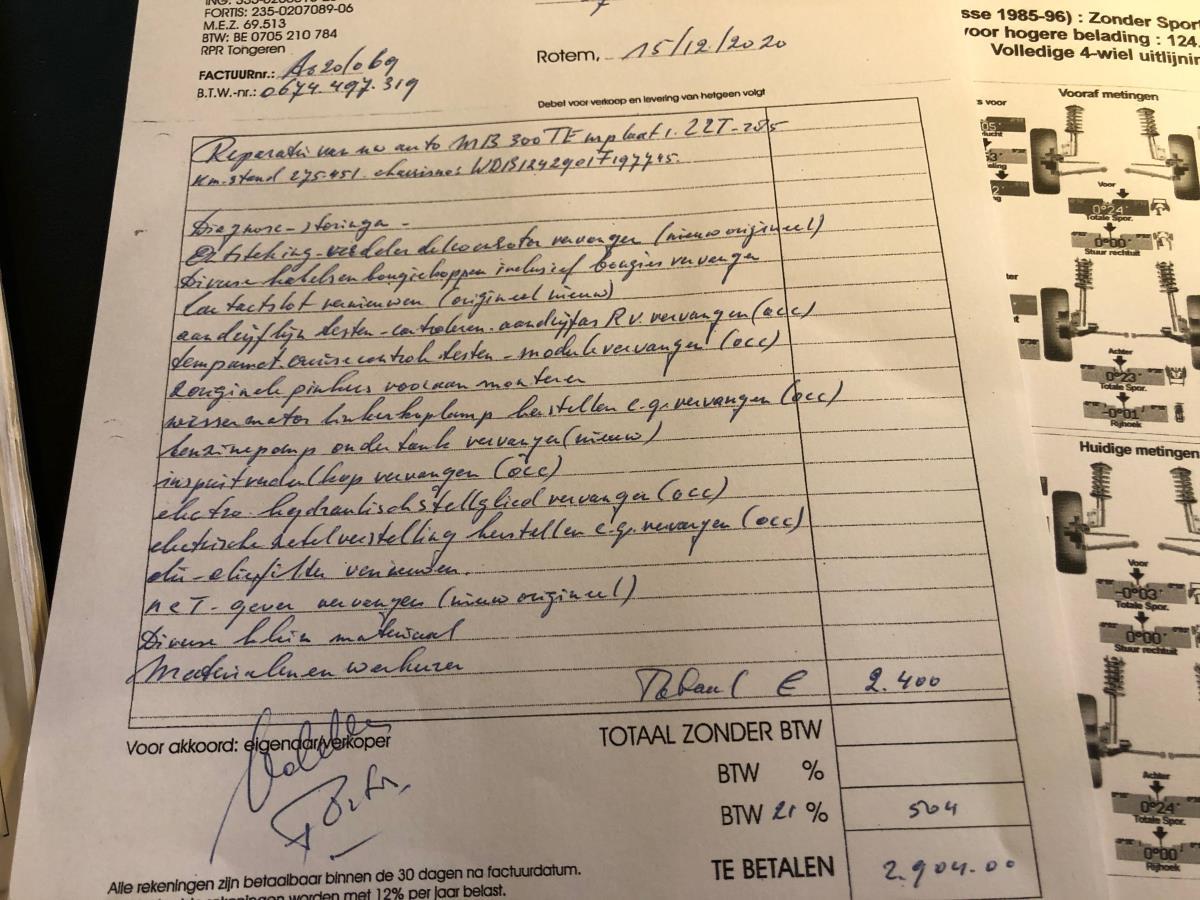 FORTIS: 235-0207089-06
M.E.Z. 69.513
BTW: BE 0705 210 784
RPR Tongeren
FACTUURnr.: A020/069
B.T.W.-nr.: 0674.497.319
Rotem, 15/12/2020
Debet voor verkoop en levering van hetgeen volgt
Reparatie van uw auto MB 300TE nrplaat 1.ZZT-285
Km.stand 275.451. chassisnos WDB1242901F197745.
Diagnose-storingen -
Ontsteking-verdeler de vervangen (nieuw origineel)
Diverse kabels en bougiekoppen inclusief bougies vervangen
Contactslot vernieuwen (origineel nieuw)
aandrijflijn testen-controleren. aandrijfas R.v. vervangen (occ)
tempomat cruisecontrole testen-module vervangen (occ)
2 originele pinkers vooraan monteren
wissermotor linkerkoplamp herstellen e.q. vervangen (occ)
benzinepomp onder tank vervangen (nieuw)
inspuitverdelkop vervangen (occ)
electro-hydraulisch stellglied vervangen (occ)
electrische zetelverstelling herstellen e.q. vervangen (occ)
olie-oliefilter vernieuwen.
gever vervangen (nieuw origineel)
Diverse klein materiaal
Materialen en werkuren
Totaal € 2.400
Voor akkoord: eigenaar/verkoper
TOTAAL ZONDER BTW
BTW %
BTW 21 % 504
TE BETALEN 2.904.00
Alle rekeningen zijn betaalbaar binnen de 30 dagen na factuurdatum.
worden met 12% per jaar belast.
sse 1985-96) : Zonder Sport
voor hogere belading : 124.
Volledige 4-wiel uitlijnin
s voor
Vooraf metingen
Voor
0°24'
Totale Spor.
0°00'
Stuur rechtuit
Achter
0°23'
Totale Spor.
-0°01'
Rijhoek
Huidige metingen
Voor
-0°03'
Totale Spor.
0°00'
Stuur rechtuit
Achter
0°24'
Totale Spor.
0°00'
Rijhoek